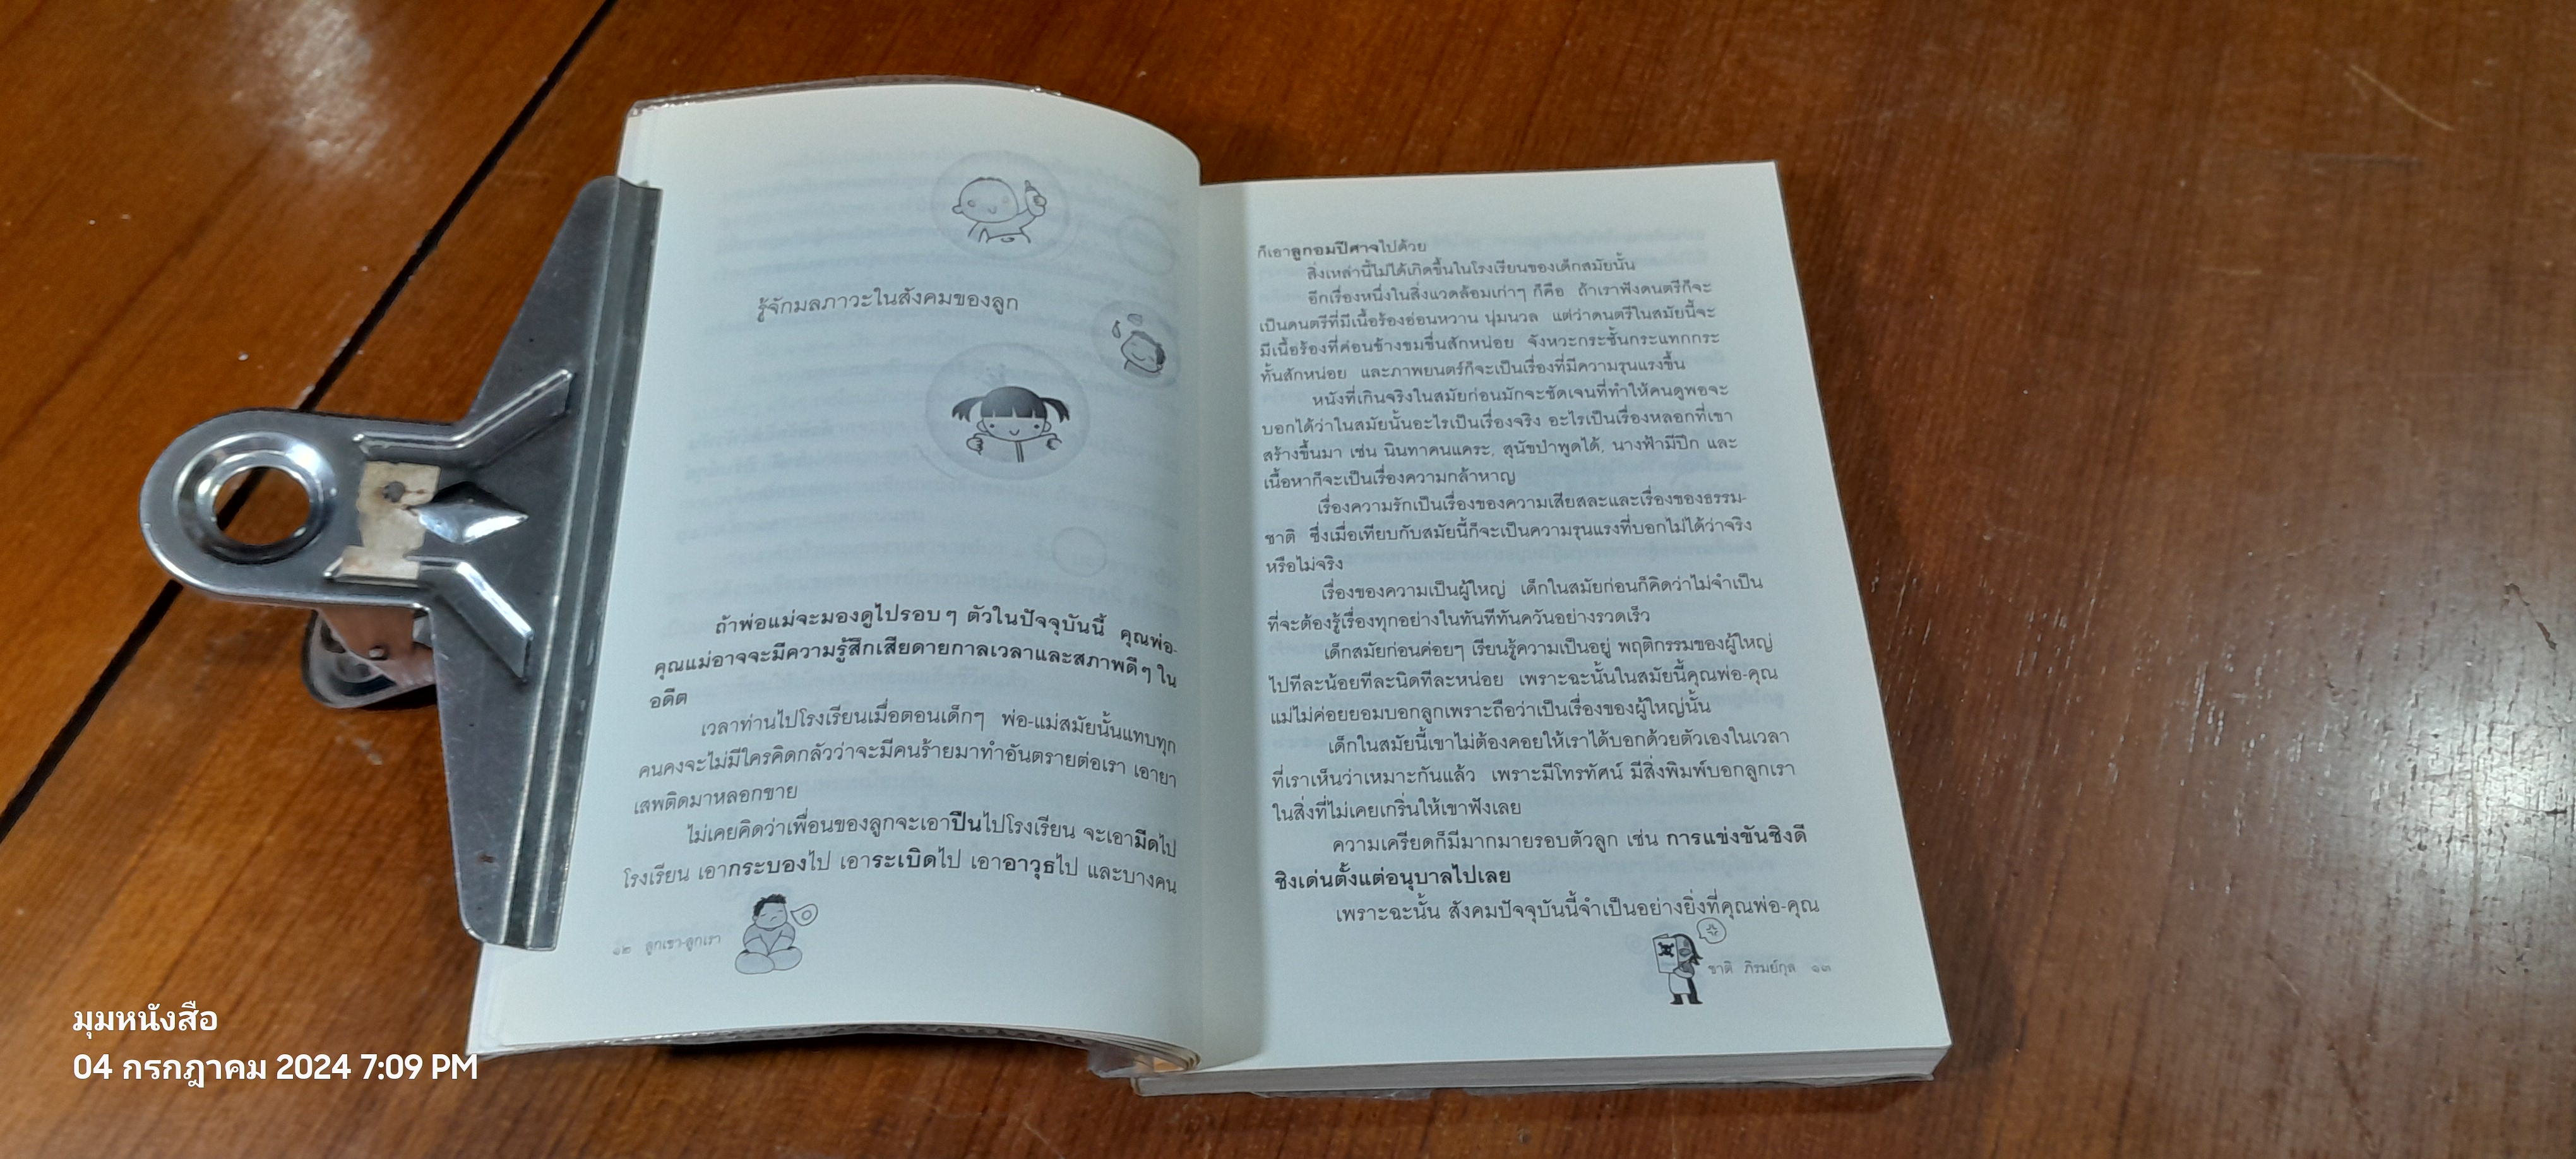 รู้จักมลภาวะในสังคมของลูก
ถ้าพ่อแม่จะมองดูไปรอบๆ ตัวในปัจจุบันนี้ คุณพ่อ-
คุณแม่อาจจะมีความรู้สึกเสียดายกาลเวลาและสภาพดีๆ ใน
อดีต
เวลาท่านไปโรงเรียนเมื่อตอนเด็กๆ พ่อ-แม่สมัยนั้นแทบทุก
คนคงจะไม่มีใครคิดกลัวว่าจะมีคนร้ายมาทำอันตรายต่อเรา เอายา
เสพติดมาหลอกขาย
ไม่เคยคิดว่าเพื่อนของลูกจะเอาปืนไปโรงเรียน จะเอามีดไป
โรงเรียน เอากระบองไป เอาระเบิดไป เอาอาวุธไป และบางคน
๑๒ ลูกเขา-ลูกเรา
ก็เอาลูกอมปีศาจไปด้วย
สิ่งเหล่านี้ไม่ได้เกิดขึ้นในโรงเรียนของเด็กสมัยนั้น
อีกเรื่องหนึ่งในสิ่งแวดล้อมเก่าๆ ก็คือ ถ้าเราฟังดนตรีก็จะ
เป็นดนตรีที่มีเนื้อร้องอ่อนหวาน นุ่มนวล แต่ว่าดนตรีในสมัยนี้จะ
มีเนื้อร้องที่ค่อนข้างขมขื่นสักหน่อย จังหวะกระชั้นกระแทกกระ
ทั้นสักหน่อย และภาพยนตร์ก็จะเป็นเรื่องที่มีความรุนแรงขึ้น
หนังที่เกินจริงในสมัยก่อนมักจะชัดเจนที่ทำให้คนดูพอจะ
บอกได้ว่าในสมัยนั้นอะไรเป็นเรื่องจริง อะไรเป็นเรื่องหลอกที่เขา
สร้างขึ้นมา เช่น นินทาคนแคระ, สุนัขป่าพูดได้, นางฟ้ามีปีก และ
เนื้อหาก็จะเป็นเรื่องความกล้าหาญ
เรื่องความรักเป็นเรื่องของความเสียสละและเรื่องของธรรม-
ชาติ ซึ่งเมื่อเทียบกับสมัยนี้ก็จะเป็นความรุนแรงที่บอกไม่ได้ว่าจริง
หรือไม่จริง
เรื่องของความเป็นผู้ใหญ่ เด็กในสมัยก่อนก็คิดว่าไม่จำเป็น
ที่จะต้องรู้เรื่องทุกอย่างในทันทีทันควันอย่างรวดเร็ว
เด็กสมัยก่อนค่อยๆ เรียนรู้ความเป็นอยู่ พฤติกรรมของผู้ใหญ่
ไปทีละน้อยทีละนิดทีละหน่อย เพราะฉะนั้นในสมัยนี้คุณพ่อ-คุณ
แม่ไม่ค่อยยอมบอกลูกเพราะถือว่าเป็นเรื่องของผู้ใหญ่นั้น
เด็กในสมัยนี้เขาไม่ต้องคอยให้เราได้บอกด้วยตัวเองในเวลา
ที่เราเห็นว่าเหมาะกันแล้ว เพราะมีโทรทัศน์ มีสิ่งพิมพ์บอกลูกเรา
ในสิ่งที่ไม่เคยเกริ่นให้เขาฟังเลย
ความเครียดก็มีมากมายรอบตัวลูก เช่น การแข่งขันชิงดี
ชิงเด่นตั้งแต่อนุบาลไปเลย
เพราะฉะนั้น สังคมปัจจุบันนี้จำเป็นอย่างยิ่งที่คุณพ่อ-คุณ
ชาติ ภิรมย์กุล ๑๓
มุมหนังสือ
04 กรกฎาคม 2024 7:09 PM